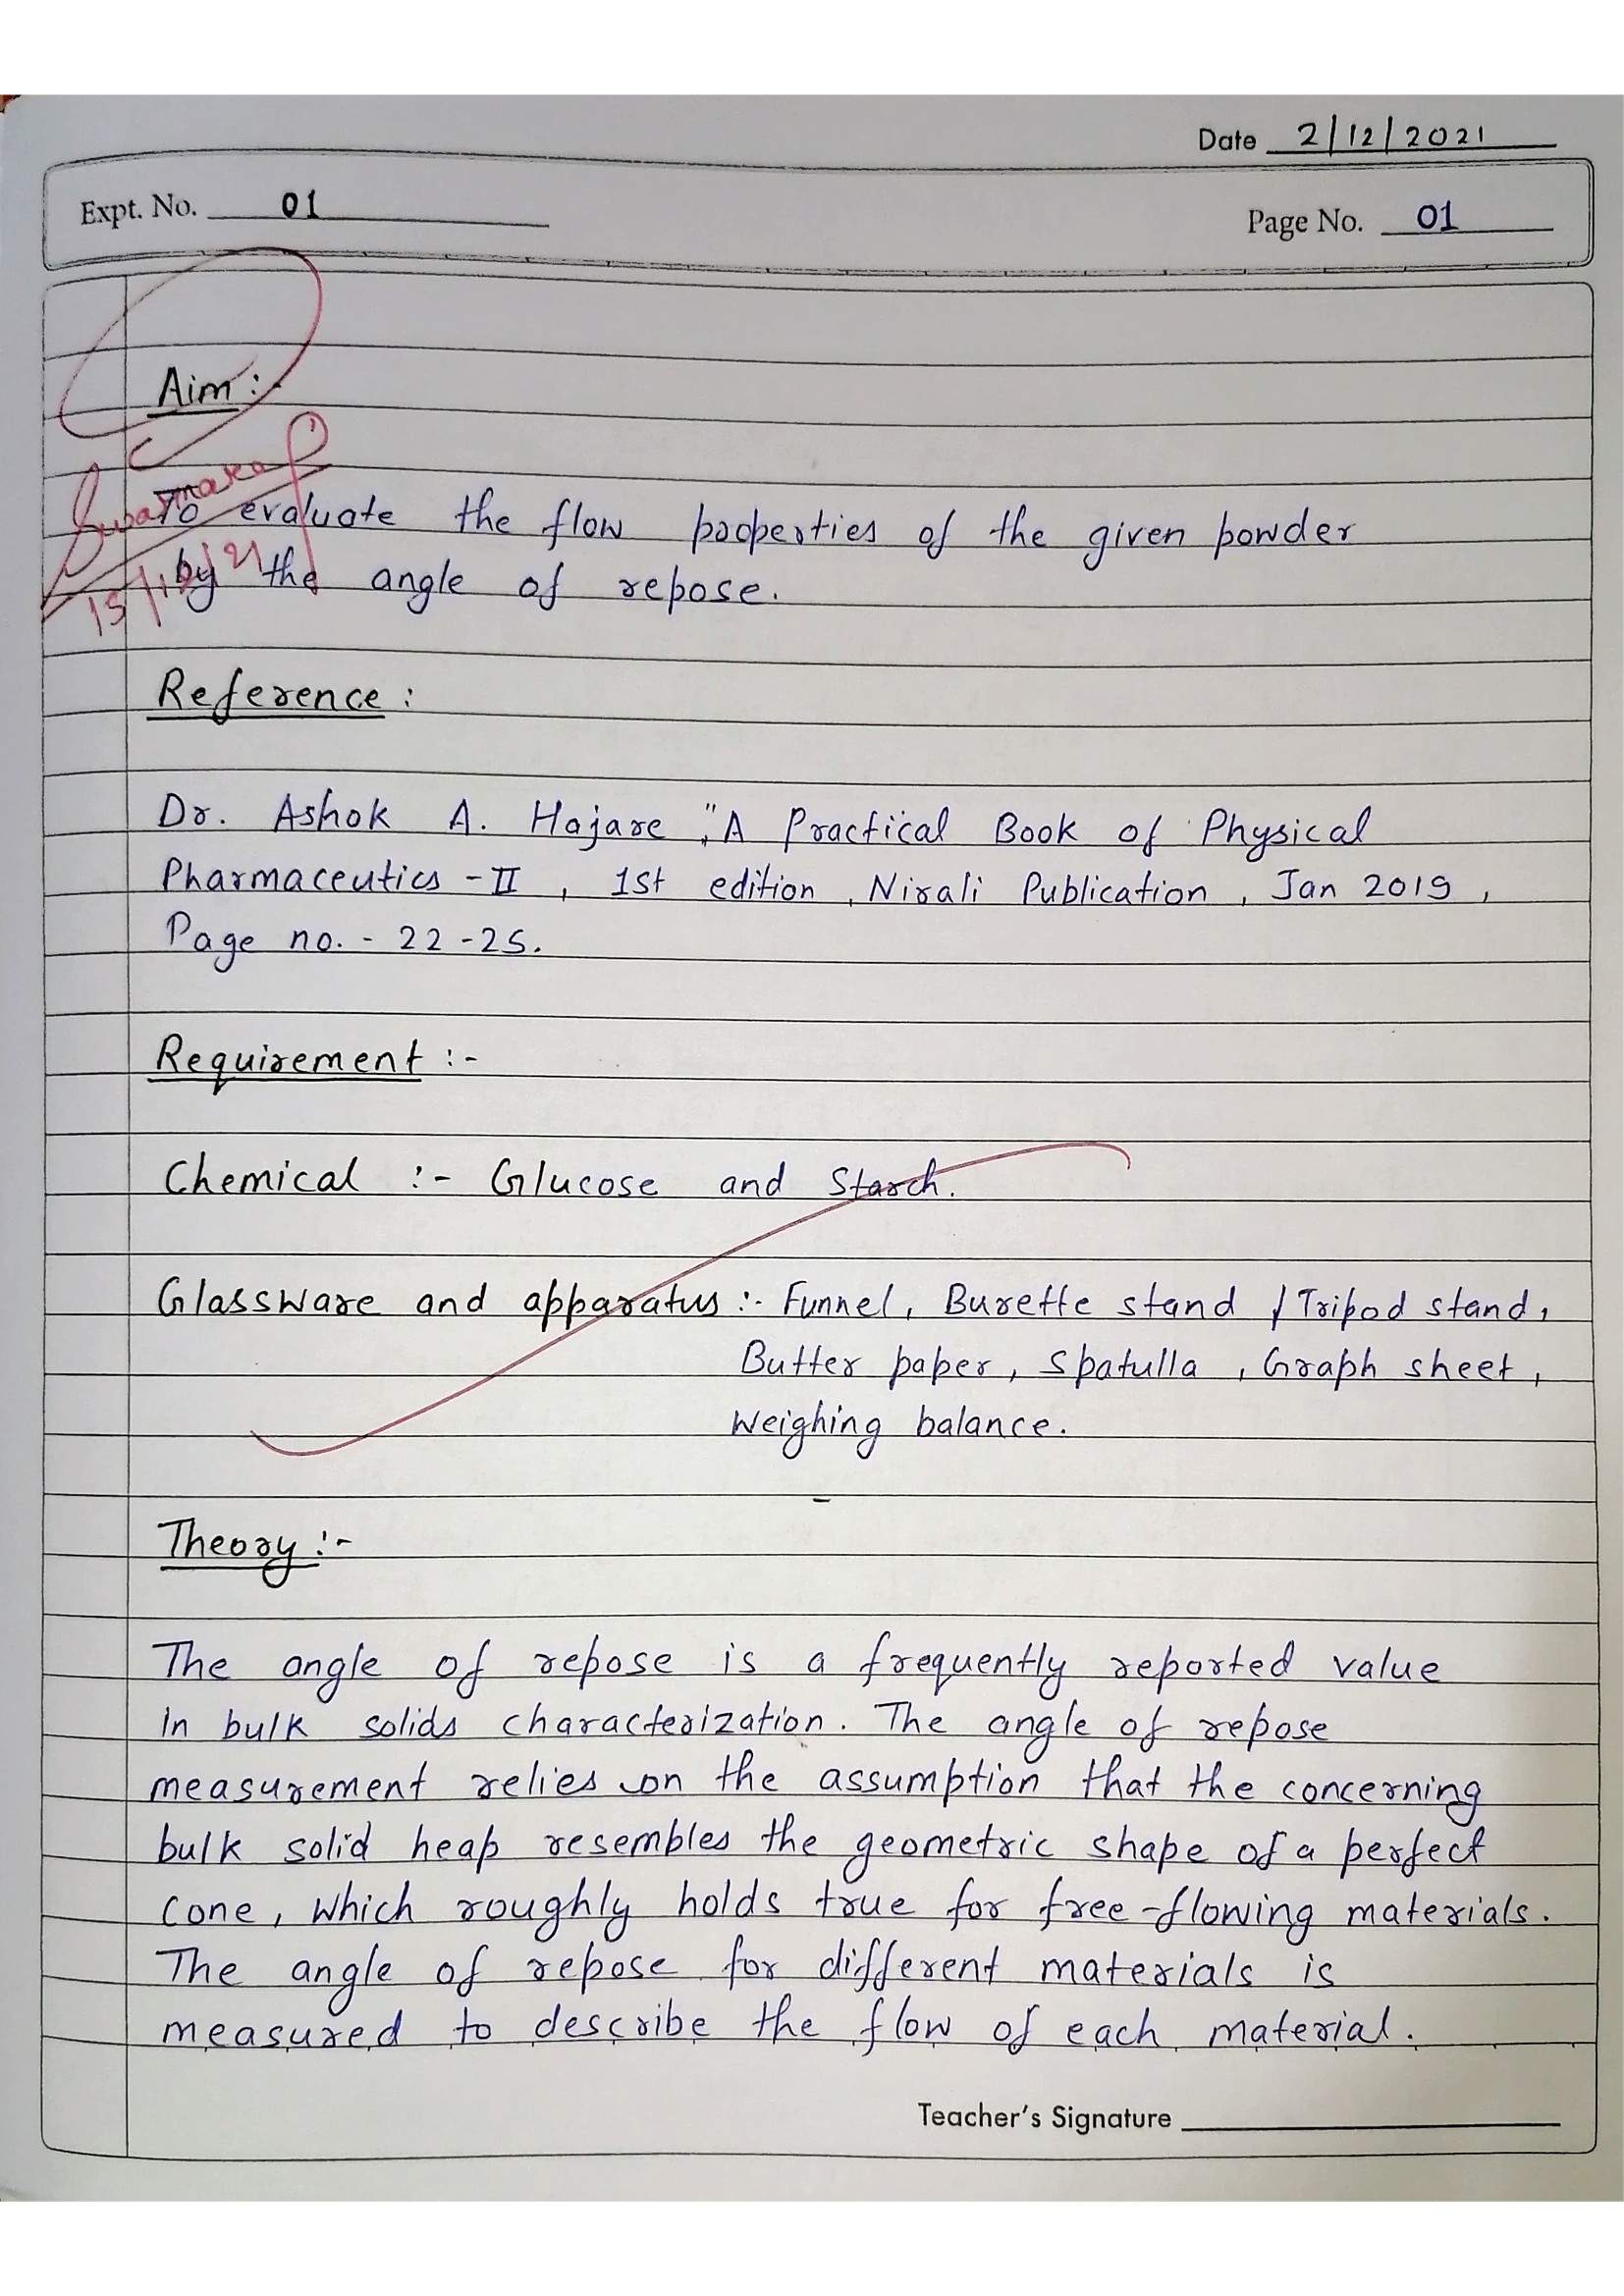 Date 2/12/2021
Expt. No. 01
Page No. 01
Aim :-
To evaluate the flow properties of the given powder
by the angle of repose.
Reference :
Dr. Ashok A. Hajare, "A Practical Book of Physical
Pharmaceutics - II , 1st edition , Nirali Publication , Jan 2019 ,
Page no. - 22 - 25.
Requirement :-
Chemical :- Glucose and Starch.
Glassware and apparatus :- Funnel, Burette stand / Tripod stand,
Butter paper, Spatulla , Graph sheet,
Weighing balance.
Theory :-
The angle of repose is a frequently reported value
in bulk solids characterization. The angle of repose
measurement relies on the assumption that the concerning
bulk solid heap resembles the geometric shape of a perfect
cone, which roughly holds true for free-flowing materials.
The angle of repose for different materials is
measured to describe the flow of each material.
Teacher's Signature